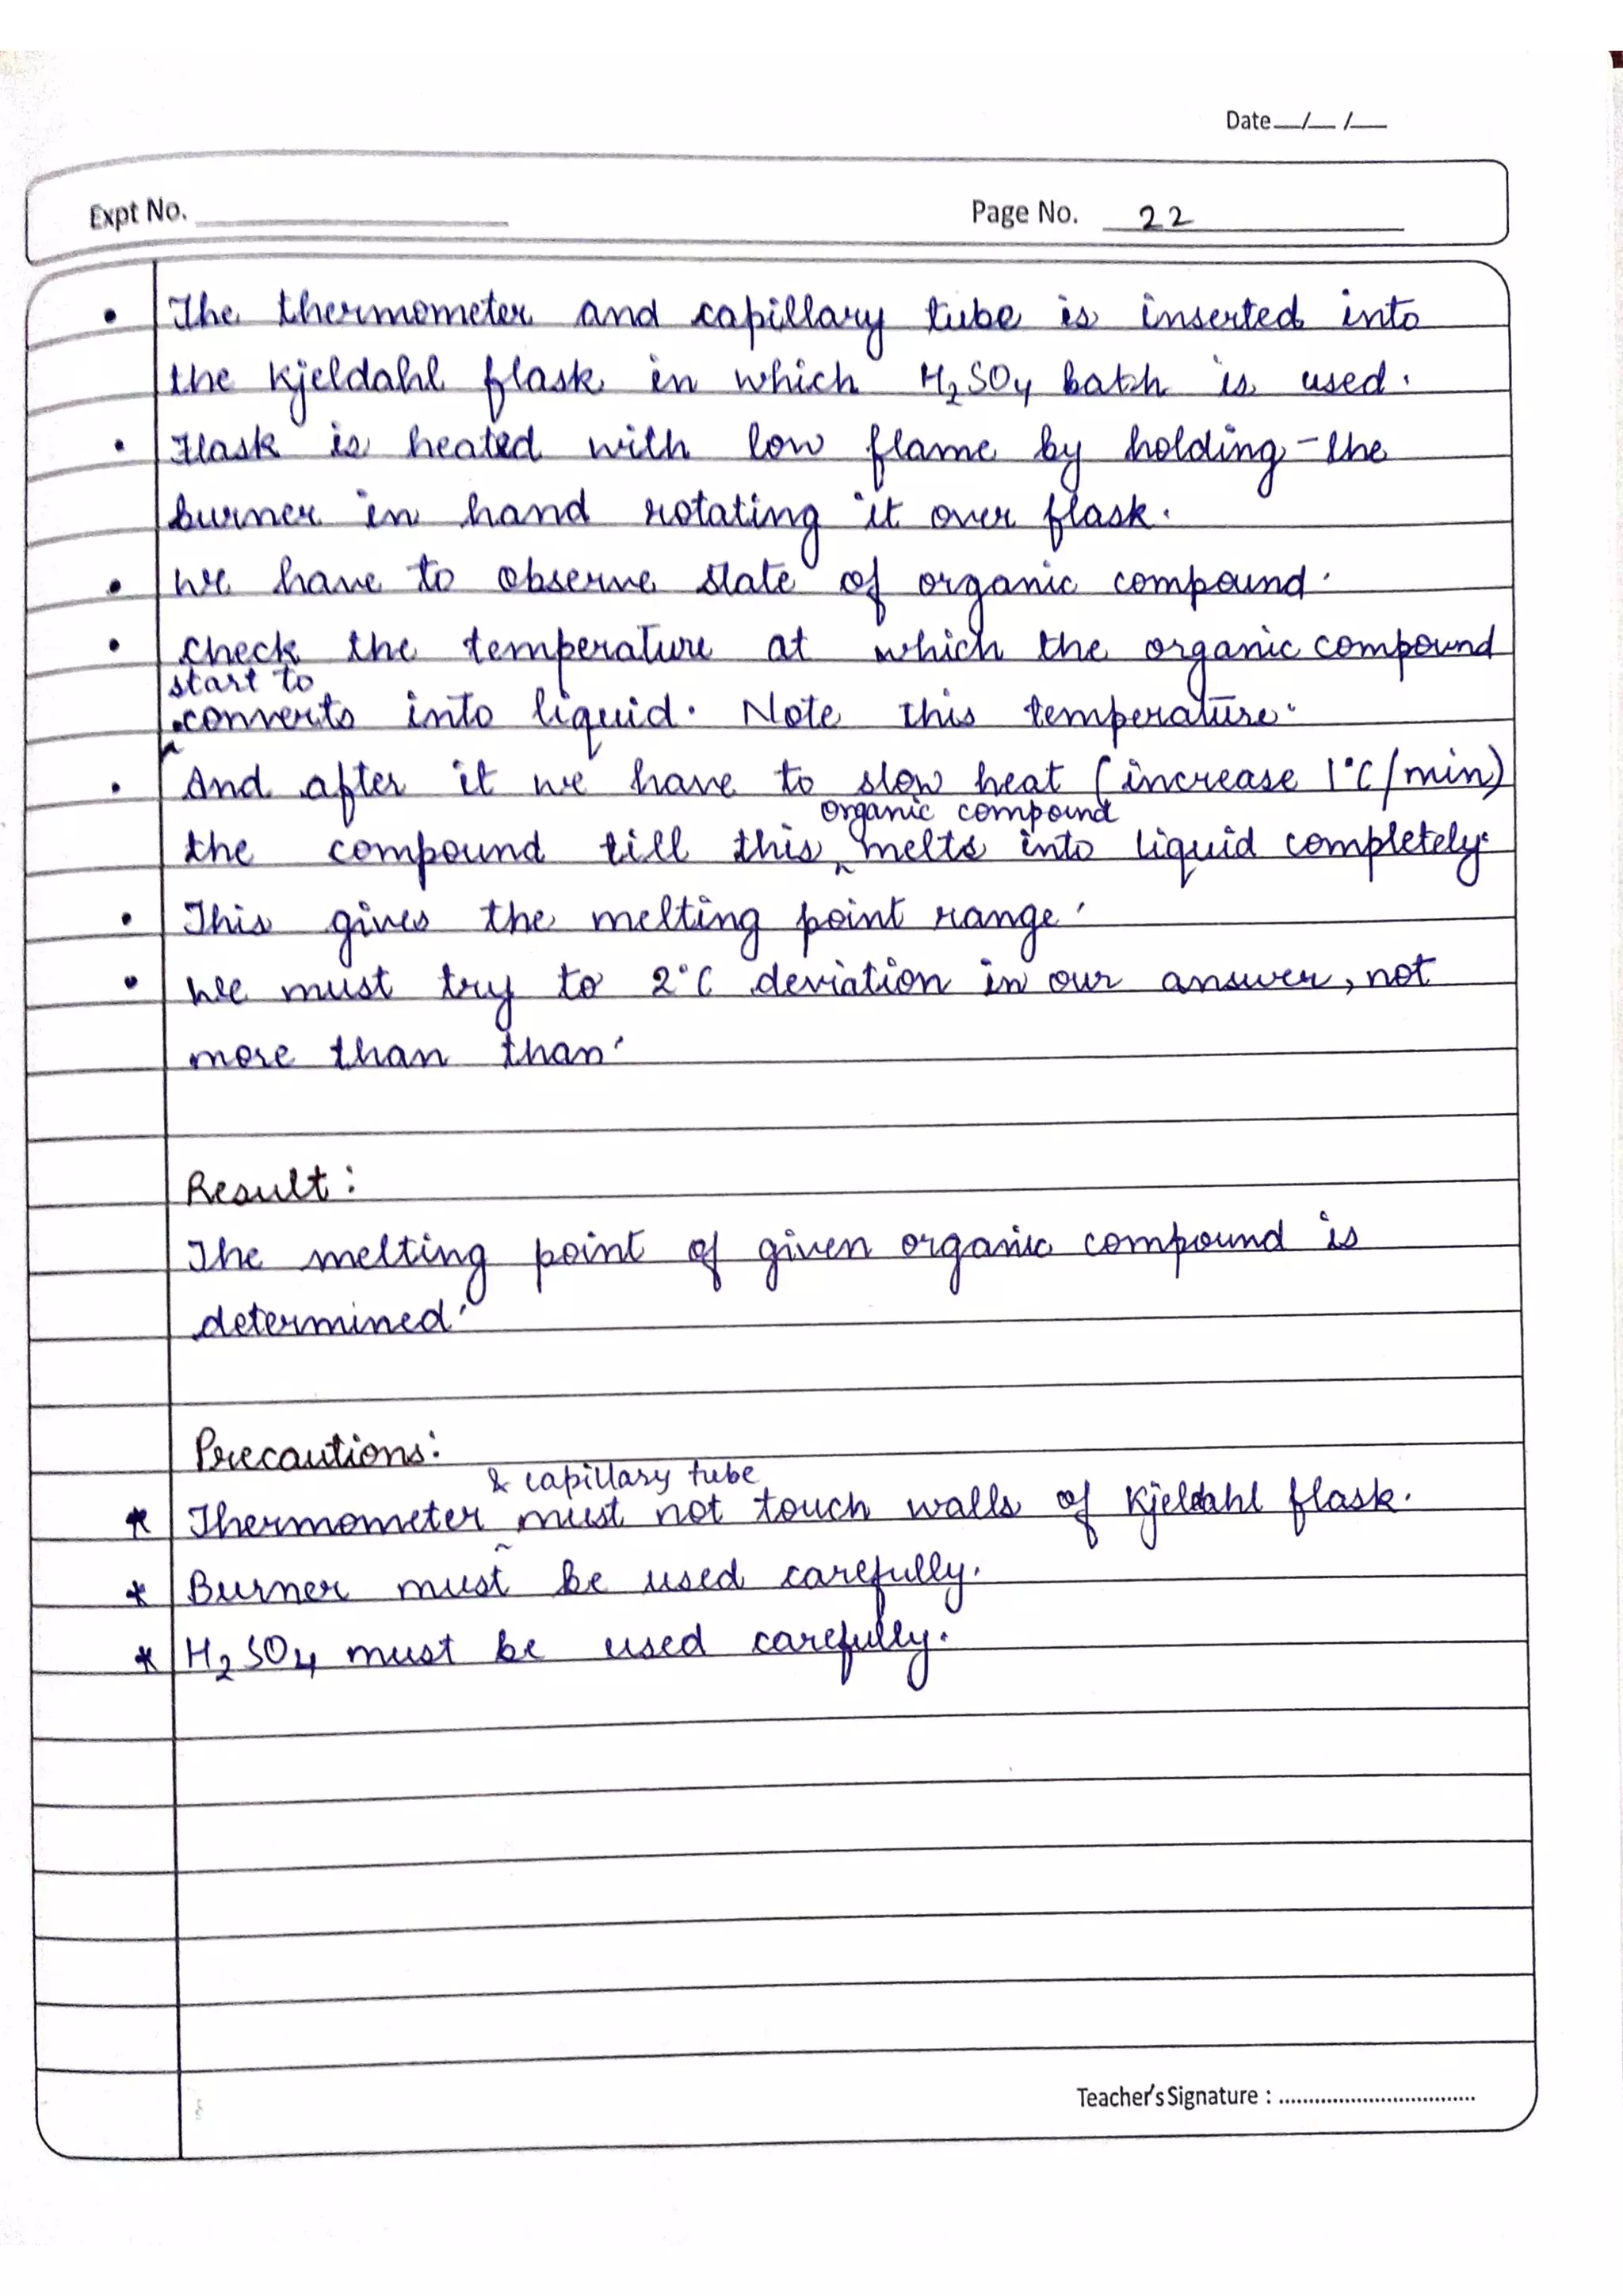 Date __/__ /__
Expt No. Page No. 22
• The thermometer and capillary tube is inserted into
the Kjeldahl flask in which H₂SO₄ bath is used.
• Flask is heated with low flame by holding the
burner in hand rotating it over flask.
• We have to observe state of organic compound.
• Check the temperature at which the organic compound
start to
converts into liquid. Note this temperature.
• And after it we have to slow heat (increase 1°C/min)
organic compound
the compound till this melts into liquid completely.
• This gives the melting point range.
• We must try to 2°C deviation in our answer, not
more than than.
Result:
The melting point of given organic compound is
determined.
Precautions:
& capillary tube
* Thermometer must not touch walls of Kjeldahl flask.
* Burner must be used carefully.
* H₂SO₄ must be used carefully.
Teacher's Signature : ................................